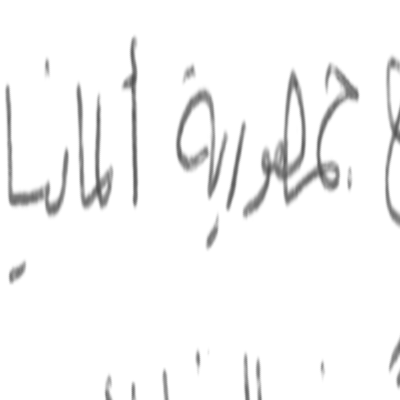 جمهورية ألمانيا